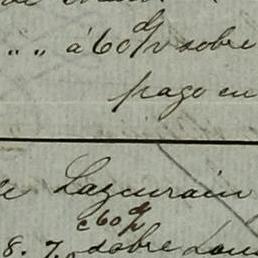 „ „ á 60 d/v sobre
pago en
Lazcurain
c 60 d/v
8. 7. sobre Lon